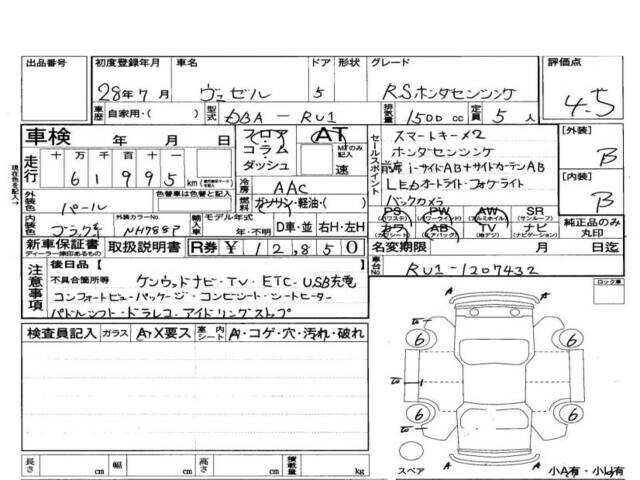 出品番号
初度登録年月 車名 ドア 形状 グレード 評価点
28年7月 ヴェゼル 5 RSホンダセンシング 4.5
車歴 自家用・( ) 型式 DBA-RU1 排気量 1500cc 定員 5人
車検 年 月 日
フロア コラム ダッシュ AT MTのみ記入 速
セールスポイント
スマートキー×2
ホンダセンシング
前席i-サイドAB+サイドカーテンAB
LEDオートライト・フォグライト
バックカメラ
[外装] B
[内装] B
現在色を記入→
走行 十 万 千 百 十 km
61995
冷房 AAC
外装色 パール 色替車は色替と元色
燃料 ガソリン・軽油・( )
内装色 ブラック 外装カラーNo. NH788P
輸入車 モデル年式 年・不明 D車・並 右H・左H
PS (パワステ) PW (パワーウィンド) AW (アルミホイル) SR (サンルーフ)
カワ (カワシート) AB (エアバッグ) TV (地デジ) ナビ (ナビゲーション)
純正品のみ丸印
新車保証書 ディーラー捺印あるもの 取扱説明書 R券 ¥12,850
名変期限 月 日迄
車台No. RU1-1207432
注意事項
後日品[ ]
不具合箇所等 ケンウッドナビ・TV・ETC・USB充電
コンフォートビューパッケージ・コンビシート・シートヒーター
パドルシフト・ドラレコ・アイドリングストップ
ロック車
検査員記入 ガラス A・X要ス 室内シート A・コゲ・穴・汚れ・破れ
6 6
1
6 6
A A
A A
スペア
小A有・小U有
長さ cm 幅 cm 高さ cm 積載量 kg